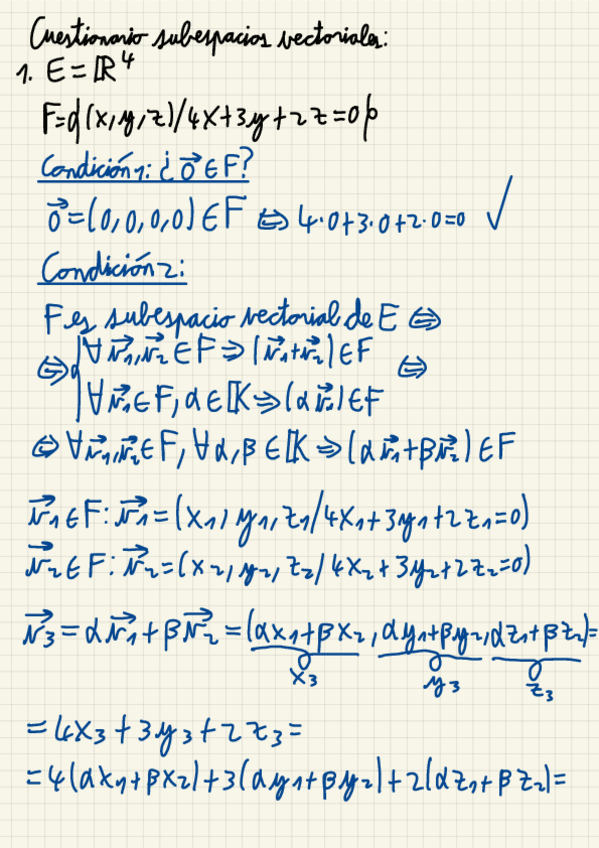 Cuestionario subespacios vectoriales:
1. E = ℝ⁴
F = {(x, y, z) / 4x + 3y + 2z = 0}
Condición 1: ¿ 0⃗ ∈ F?
0⃗ = (0, 0, 0, 0) ∈ F ⇔ 4·0 + 3·0 + 2·0 = 0 ✓
Condición 2:
F es subespacio vectorial de E ⇔
⇔ { ∀ v⃗₁, v⃗₂ ∈ F ⇒ (v⃗₁ + v⃗₂) ∈ F ⇔
∀ v⃗₁ ∈ F, α ∈ 𝕂 ⇒ (α v⃗₁) ∈ F
⇔ ∀ v⃗₁, v⃗₂ ∈ F, ∀ α, β ∈ 𝕂 ⇒ (α v⃗₁ + β v⃗₂) ∈ F
v⃗₁ ∈ F: v⃗₁ = (x₁, y₁, z₁ / 4x₁ + 3y₁ + 2z₁ = 0)
v⃗₂ ∈ F: v⃗₂ = (x₂, y₂, z₂ / 4x₂ + 3y₂ + 2z₂ = 0)
v⃗₃ = α v⃗₁ + β v⃗₂ = (αx₁ + βx₂, αy₁ + βy₂, αz₁ + βz₂) =
x₃ y₃ z₃
= 4x₃ + 3y₃ + 2z₃ =
= 4(αx₁ + βx₂) + 3(αy₁ + βy₂) + 2(αz₁ + βz₂) =